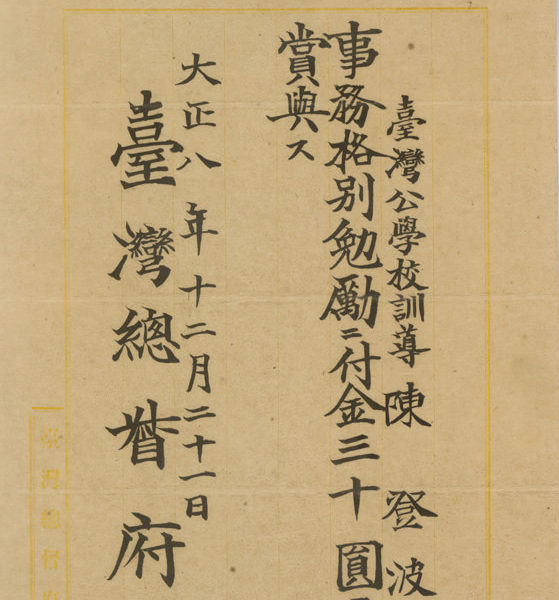 臺灣公學校訓導 陳 登波
事務格別勉勵ニ付金三十圓
賞與ス
大正八年十二月二十一日
臺灣總督府
臺灣總督府